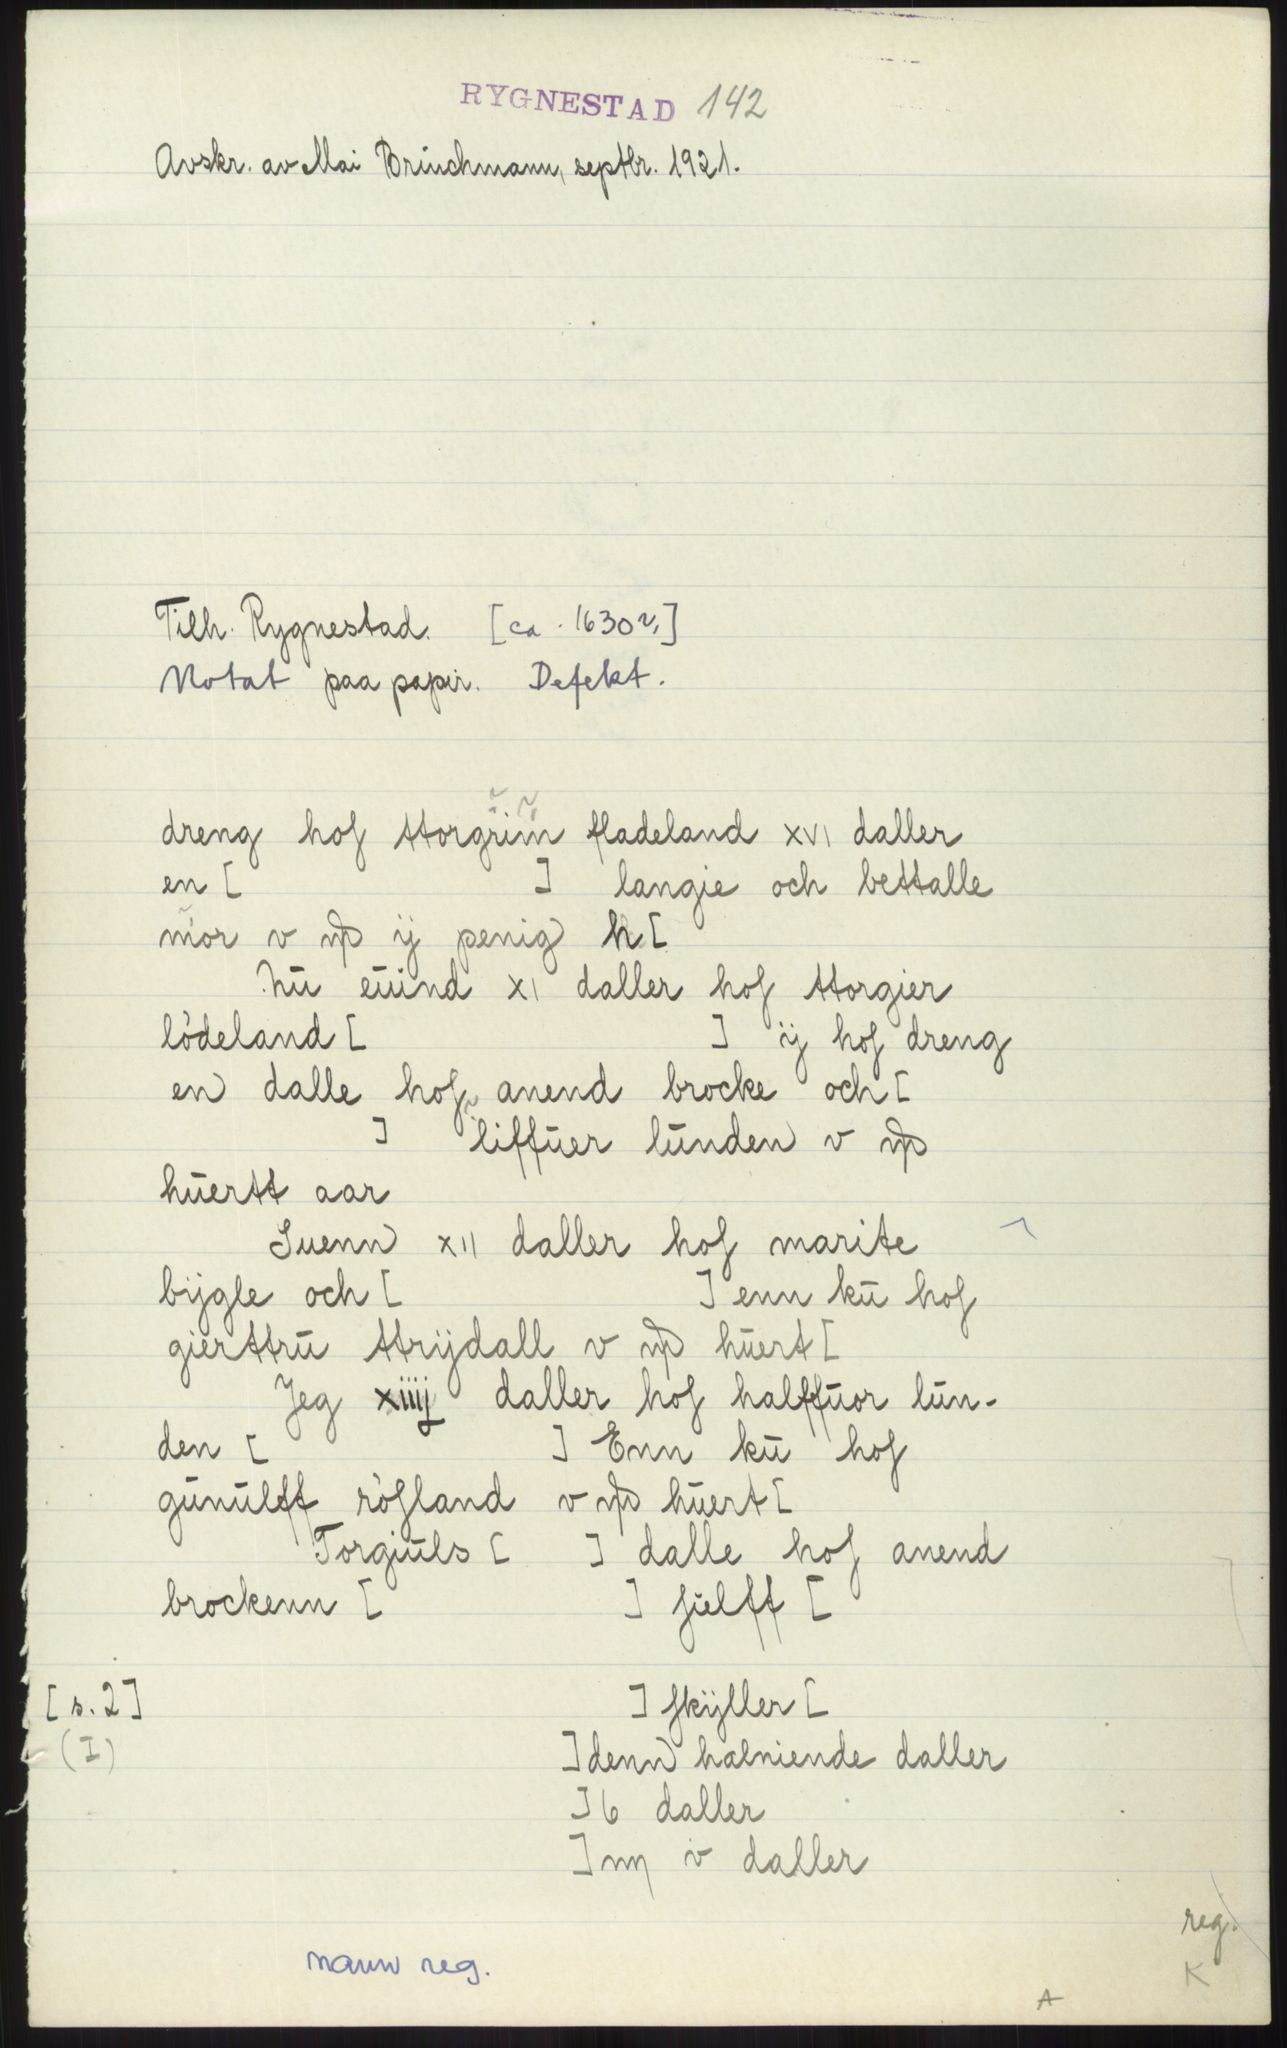 RYGNESTAD 142
Avskr. av Mai Brüchmann, septbr. 1921.
Tilh. Rygnestad. [ca. 1630?]
Notat paa papir. Defekt.
dreng hoſ ttorgrim fladeland XVI daller
en [ ] langie och bettalle
mor v ij penig h [
hū eūind XI daller hoſ ttorgier
lödeland [ ] ij hoſ dreng
en dalle hoſ anend brocke och [
] liffūer lūnden v
hūertt aar
Suenn XII daller hoſ marite
bijgle och [ ] enn kū hoſ
gierttrū ttrijdall v hūert [
Jeg xiiij daller hoſ halffūor lūn-
den [ ] Enn kū hoſ
gūnūlff röſland v hūert [
Torgiūls [ ] dalle hoſ anend
brockenn [ ] ſielff [
[s. 2] ] ſkÿller [
(I) ] denn halniende daller
] 6 daller
] v daller
reg.
navn reg.
K
A